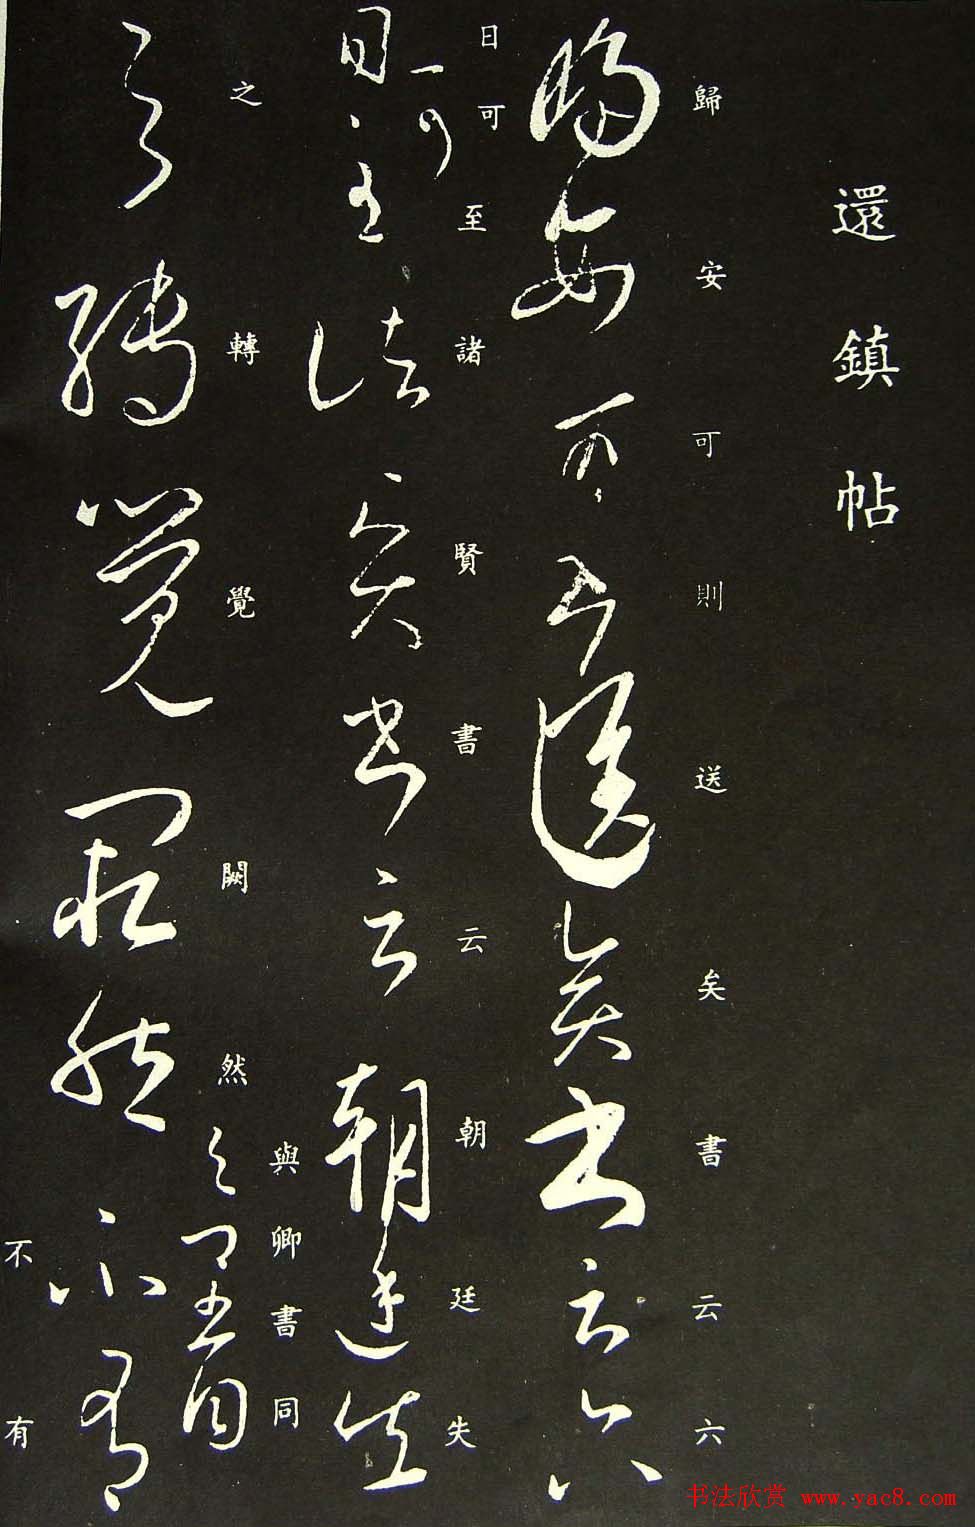 還鎮帖
歸安可則送矣書云六
日可至諸賢書云朝廷失
之轉覺闕然與卿書同
不有
书法欣赏 www.yac8.com